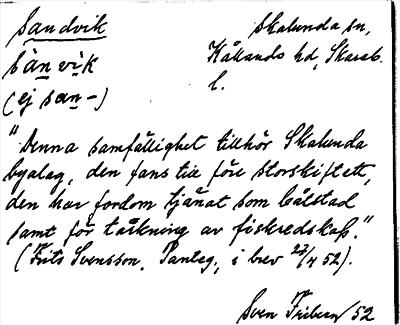 Sandvik
Skalunda sn,
sànvìk
Kållands hd, Skarab.
l.
(ej san-)
"Denna samfällighet tillhör Skalunda
byalag, den fans till före storskiftett,
den har fordom tjänat som båtstad
samt för torkning av fiskredskap."
(Frits Svensson, Pantag, i brev 27/4 52).
Sven Friberg/52